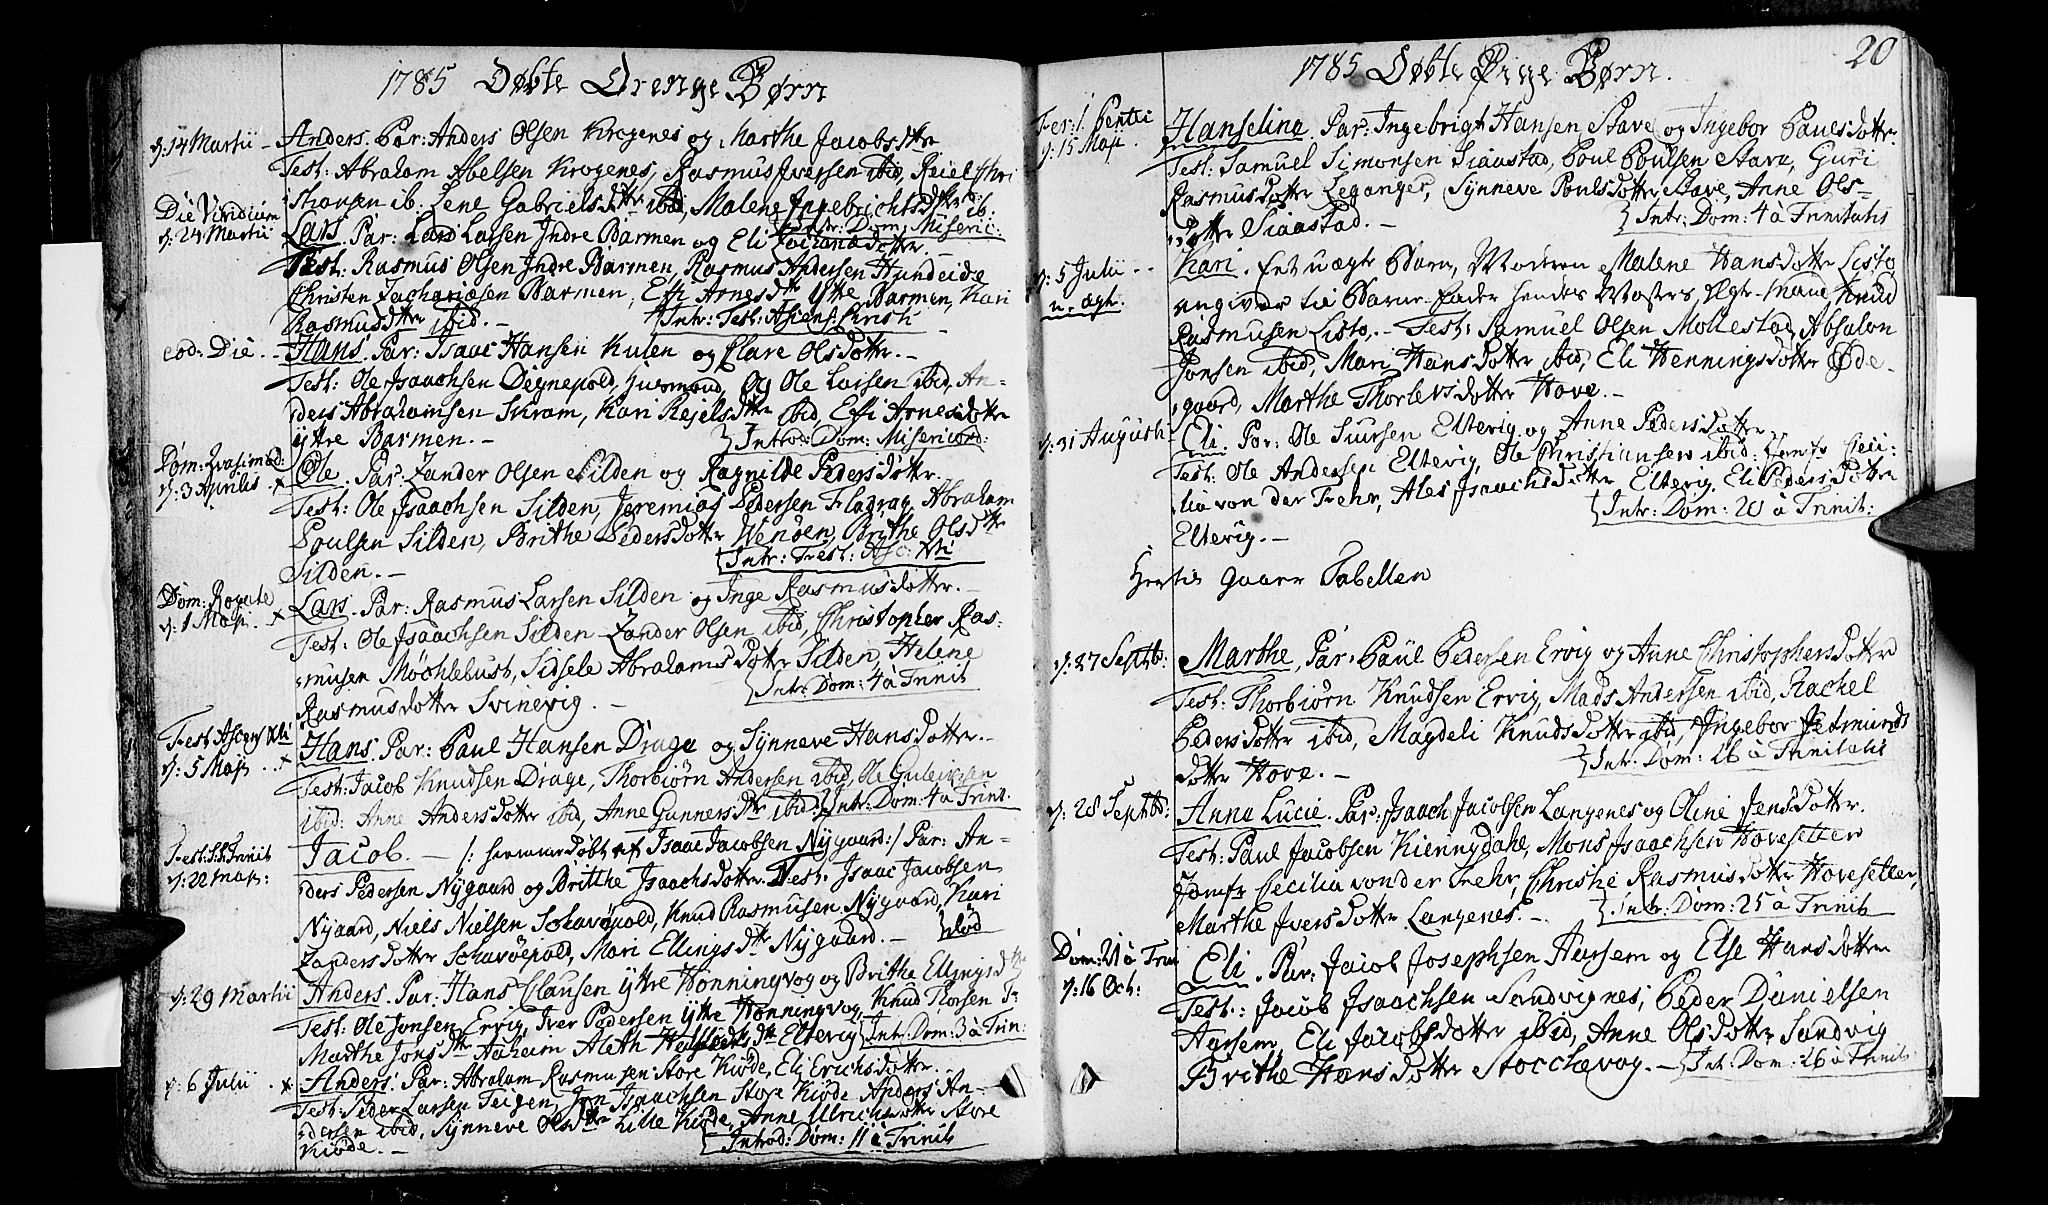 1785 Døbte Drenge Børn
d: 14 Martii - Anders. Par: Anders Olsen Krogenes og Marthe Jacobsdtter
Test: Abraham Abelsen Krogenes, Rasmus Iversen ibid, Reiel Chri
sthansen ib. Lene Gabrielsdtter ibid, Malene Ingebrichtsdtter ib:
Intr: Dom: Miseric:
Die Viridium
d: 24 Martii
Lars. Par: Lars Larsen Indre Barmen og Eli Zachariædotter.
Test: Rasmus Olsen Indre Barmen, Rasmus Andersen Hundeide
Christen Zachariæsen Barmen, Effi Arnesdtr Ytre Barmen, Kari
Rasmusdtter ibid. - Intr: Fest: Ascens: Christi
eod: Die. - Hans. Par: Isaac Hansen Kulen og Clare Olsdotter. -
Test: Ole Isaachsen Degnepold, Ole Larsen ibid, An-
ders Abrahamsen Skram, Kari Rejelsdtter ibid Effi Arnesdotter
Ytre Barmen. - Introd: Dom: Misericord:
Dom: Qvasimod:
d: 3 Aprilis x
Ole. Par: Zander Olsen Silden og Ragnilde Pedersdotter.
Test: Ole Isaachsen Silden, Jeremias Pedersen Fladrag, Abraham
Poulsen Silden, Brithe Pedersdotter Wenden, Brythe Olsdtter
Silden. - Intr: Fest: Asc: Xti
Dom: Rogate
d: 1 Maji. x
Lars. Par: Rasmus Larsen Silden og Inge Rasmusdotter. -
Test: Ole Isaachsen Silden Zander Olsen ibid, Christopher Ras-
musen Möchlebust, Sidsele Abrahamsdotter Silden, Helene
Rasmusdotter Svinevig. - Intr: Dom: 4 à Trinit
Fest Ascens Xti
d: 5 Maji . . x
Hans. Par: Paul Hansen Drage og Synneve Hansdotter. -
Test: Jacob Knudsen Drage, Thorbiörn Andersen ibid, Ole Guleiksen
ibid: Anne Andersdotter ibid, Anne Gunnersdtr ibid: Intr: Dom: 4 à Trinit.
Fest: S.S. Trinit
d: 22 Maji:
Jacob. - /: hiemmedøbt af Isaac Jacobsen Nygaard :/ Par: An-
ders Pedersen Nygaard og Britthe Isaachsdotter. Test: Isaac Jacobsen
Nygaard, Niels Nielsen Schavøpold, Knud Rasmusen Nygaard, Kari
Zandersdotter Schavøepold, Mari Ellingsdtr Nygaard. - død
d: 29 Martii Anders. Par: Hans Clausen ytre Honningvog og Brithe Ellingsdtr
Test: Ole Jonsen Ervig, Iver Pedersen ytre Honningvog, Knud Thorsen
Marthe Jonsdtr Aaheim Aleth Halstedsdtr Eltevig Intr: Dom: 3 à Trin:
d: 6 Julii . . x Anders. Par: Abraham Rasmusen Store Kiøde, Eli Erichsdotter. . .
Test: Peder Larsen Teigen, Jon Isaachsen Store Kiöde Anders An-
dersen ibid, Synneve Olsdtter Lille Kiöde, Anne Ullrichsdotter Store
Kiøde. - Introd: Dom: 11 à Trinit
1785 Døbte Pige Børn. 20
Fer: 1. Pentec
d: 15 Maji.
Hanselina. Par: Ingebrigt Hansen Stave og Ingebor Poulsdotter.
Test: Samuel Simonsen Siaastad, Poul Poulsen Stave, Guri
Rasmusdotter Leganger, Synneve Poulsdotter Stave, Anne Ols-
dotter Siaastad. - Intr: Dom: 4 à Trinitatis
d: 5 Julii . .
u-ægt.
Kari. Eet uægte Barn, Moderen Malene Hansdotter Listo
angiver til Barne-Fader hendes Mosters Ægte-Mand Knud
Rasmusen Listo. - Test: Samuel Olsen Mollestad, Absalon
Jonsen ibid, Mari Hansdotter ibid, Eli Henningsdotter Øde-
gaard, Marthe Thorlevsdotter Hove. -
d: 31 Augusti Eli. Par: Ole Siursen Eltevig og Anne Pedersdotter.
Test: Ole Andersen Eltevig, Ole Christiansen ibid: Jomfr Ceci-
lia von der Fehr, Ales Isaachsdotter Eltevig, Eli Pedersdotter
Eltevig. - Intr: Dom: 20 à Trinit:
Hertil gaaer Tabellen
d: 27 Septb: Marthe, Par: Paul Pedersen Ervig og Anne Christophersdotter
Test: Thorbiørn Knudsen Ervig, Mads Andersen ibid, Rachel
Pedersdotter ibid, Magdeli Knudsdotter ibid, Ingebor Jetmunds
dotter Hove. - Intr: Dom: 26 à Trinitatis
d: 28 Septbr: Anna Lucie. Par: Isaach Jacobsen Langenes og Oline Jensdotter.
Test: Paul Jacobsen Kiennsdahl, Mons Isaachsen Hovesetter
Jomfr Cecilia von der Fehr, Christie Rasmusdotter Hovesetter,
Marthe Iversdotter Langenes. - Intr: Dom: 25 à Trinit
Dom: 21 à Trin
d: 16 Oct:
Eli. Par: Jacob Josephsen Aarsem og Else Hansdotter
Test.: Jacob Isaachsen Sandvignes, Peder Danielsen
Aarsem, Eli Jacobsdotter ibid, Anne Olsdotter Sandvig
Brithe Hansdotter Stocchevog. - Intr: Dom: 26 à Trinit